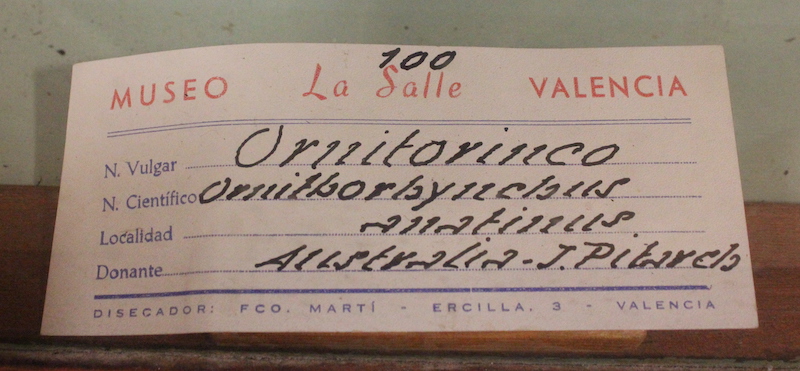 100
MUSEO La Salle VALENCIA
N. Vulgar Ornitorinco
N. Científico Ornithorhynchus
Localidad anatinus.
Donante Australia - J. Pitarch
DISECADOR: FCO. MARTÍ - ERCILLA, 3 - VALENCIA